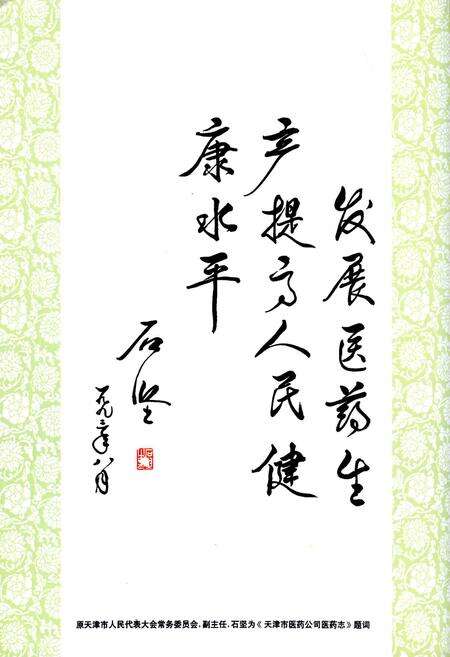 发展医药生
产提高人民健
康水平
石坚
一九九二年八月
原天津市人民代表大会常务委员会，副主任，石坚为《天津市医药公司医药志》题词